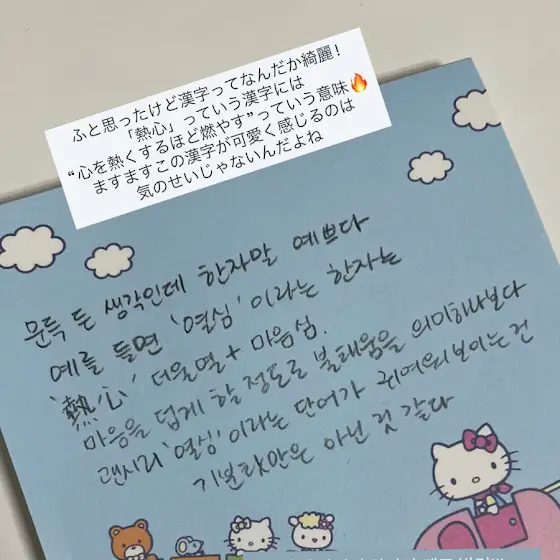 ふと思ったけど漢字ってなんだか綺麗！
「熱心」っていう漢字には
“心を熱くするほど燃やす”っていう意味🔥
ますますこの漢字が可愛く感じるのは
気のせいじゃないんだよね
문득 든 생각인데 한자말 예쁘다
예를 들면 '열심'이라는 한자는
'熱心' 더울열 + 마음심.
마음을 덥게 할 정도로 불태움을 의미하나보다
괜시리 '열심'이라는 단어가 귀여워 보이는 건
기분탓만은 아닌 것 같다